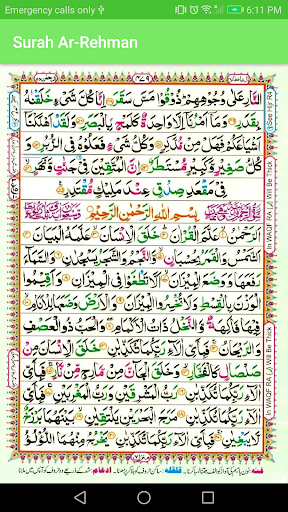 Emergency calls only
6:11 PM
Surah Ar-Rehman
۴۷۹
النَّارِ عَلٰى وُجُوْهِهِمْ ذُوْقُوْا مَسَّ سَقَرَ اِنَّا كُلَّ شَىْءٍ خَلَقْنٰهُ
بِقَدَرٍ وَمَآ اَمْرُنَآ اِلَّا وَاحِدَةٌ كَلَمْحٍۭ بِالْبَصَرِ وَلَقَدْ اَهْلَكْنَآ
اَشْيَاعَكُمْ فَهَلْ مِنْ مُّدَّكِرٍ وَكُلُّ شَىْءٍ فَعَلُوْهُ فِى الزُّبُرِ وَ
كُلُّ صَغِيْرٍ وَّكَبِيْرٍ مُّسْتَطَرٌ اِنَّ الْمُتَّقِيْنَ فِىْ جَنّٰتٍ وَّنَهَرٍ
فِىْ مَقْعَدِ صِدْقٍ عِنْدَ مَلِيْكٍ مُّقْتَدِرٍ
بِسْمِ اللّٰهِ الرَّحْمٰنِ الرَّحِيْمِ
اَلرَّحْمٰنُ عَلَّمَ الْقُرْاٰنَ خَلَقَ الْاِنْسَانَ عَلَّمَهُ الْبَيَانَ
اَلشَّمْسُ وَالْقَمَرُ بِحُسْبَانٍ وَّالنَّجْمُ وَالشَّجَرُ يَسْجُدٰنِ وَالسَّمَآءَ
رَفَعَهَا وَوَضَعَ الْمِيْزَانَ اَلَّا تَطْغَوْا فِى الْمِيْزَانِ وَاَقِيْمُوا
الْوَزْنَ بِالْقِسْطِ وَلَا تُخْسِرُوا الْمِيْزَانَ وَالْاَرْضَ وَضَعَهَا
لِلْاَنَامِ فِيْهَا فَاكِهَةٌ وَّالنَّخْلُ ذَاتُ الْاَكْمَامِ وَالْحَبُّ ذُو الْعَصْفِ
وَالرَّيْحَانُ فَبِاَىِّ اٰلَآءِ رَبِّكُمَا تُكَذِّبٰنِ خَلَقَ الْاِنْسَانَ مِنْ
صَلْصَالٍ كَالْفَخَّارِ وَخَلَقَ الْجَآنَّ مِنْ مَّارِجٍ مِّنْ نَّارٍ
فَبِاَىِّ اٰلَآءِ رَبِّكُمَا تُكَذِّبٰنِ رَبُّ الْمَشْرِقَيْنِ وَرَبُّ الْمَغْرِبَيْنِ
فَبِاَىِّ اٰلَآءِ رَبِّكُمَا تُكَذِّبٰنِ مَرَجَ الْبَحْرَيْنِ يَلْتَقِيٰنِ بَيْنَهُمَا بَرْزَخٌ
لَّا يَبْغِيٰنِ فَبِاَىِّ اٰلَآءِ رَبِّكُمَا تُكَذِّبٰنِ يَخْرُجُ مِنْهُمَا اللُّؤْلُؤُ
In WAQF RA (ر) Will Be Thick
In WAQF RA (ر) Will Be Thick